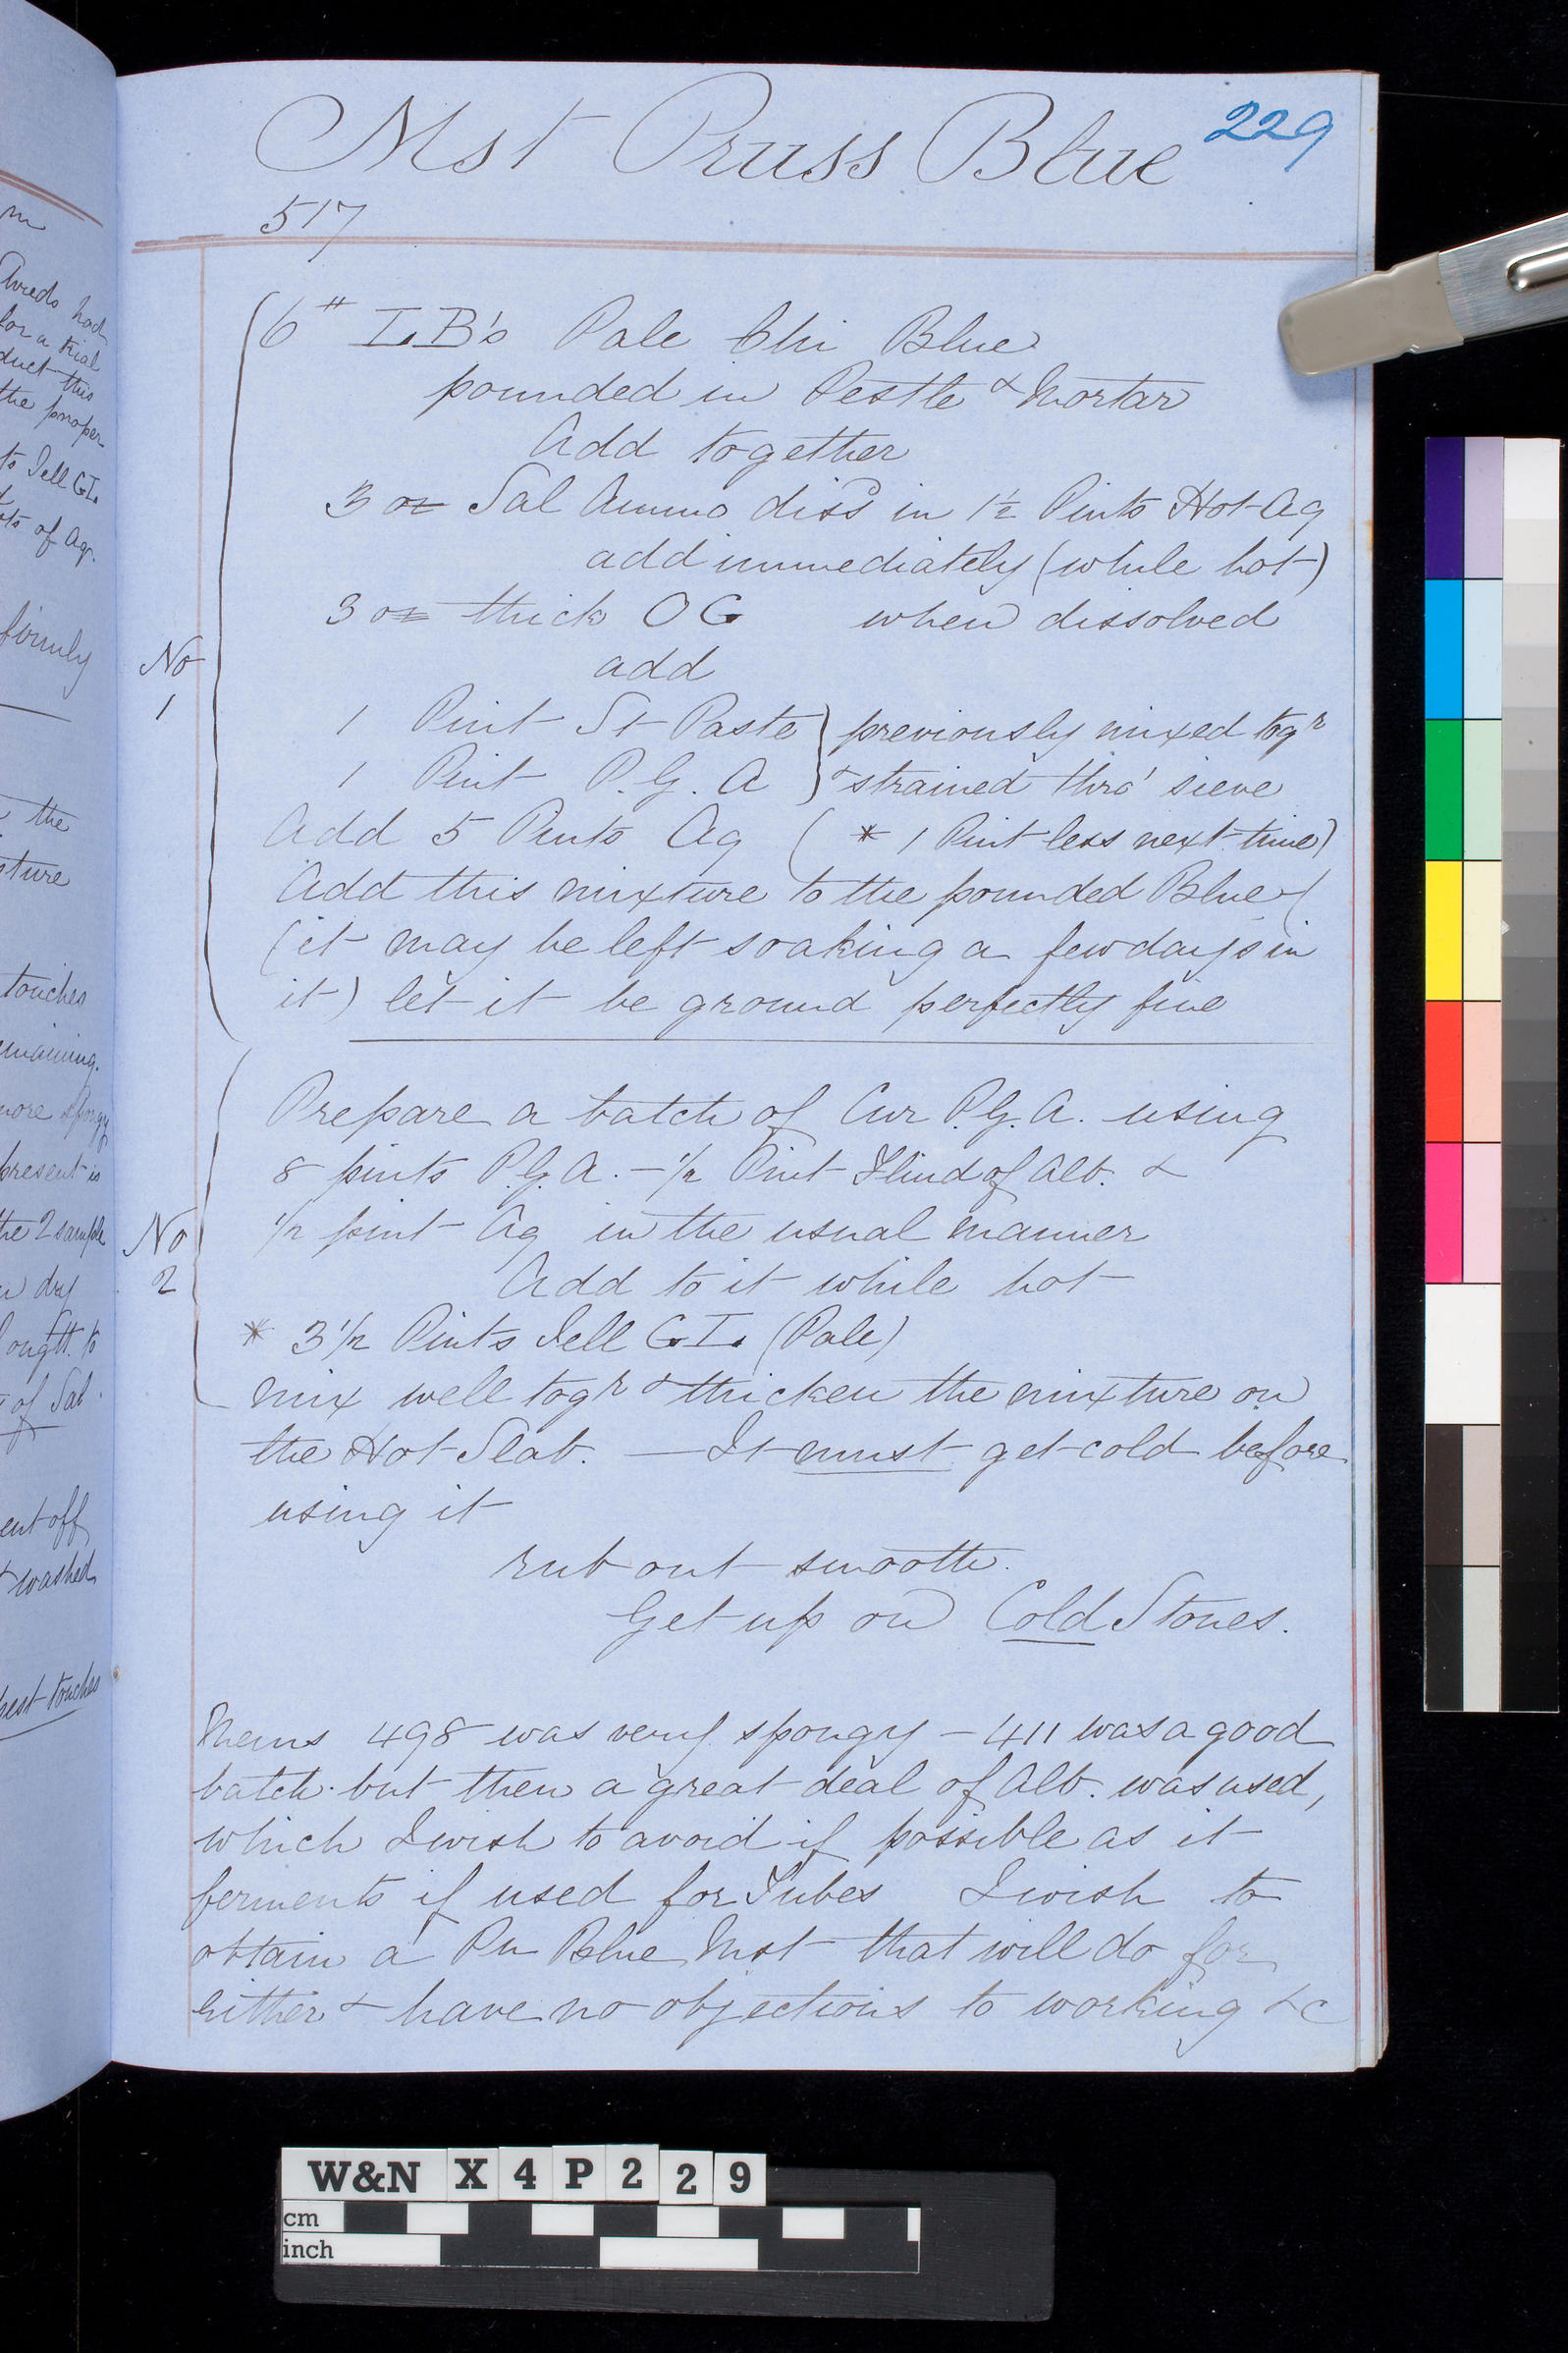 m
hod
for a trial
duct this
the proper
to Jell GI.
of Aq.
firmly
the
sture
touches
emaining.
more spongy
present is
the 2 sample
dry
ought to
of Sal
ent off
& washed
best touches
Mst Pruss Blue 229
517
6 # LB's Pale Chi Blue
pounded in Pestle & Mortar
Add together
3 oz Sal Ammo dissd in 1½ Pints Hot Aq
add immediately (while hot)
3 oz thick OG when dissolved
add
No 1
1 Pint St Paste } previously mixed togr
1 Pint P.G.A } & strained thro' sieve
Add 5 Pints Aq ( * 1 Pint less next time)
Add this mixture to the pounded Blue (
(it may be left soaking a few days in
it) let it be ground perfectly fine
Prepare a batch of Cur P.G.A. using
8 pints P.G.A. – 1/2 Pint Fluid of Alb. &
No 2
1/2 pint Aq in the usual manner
Add to it while hot
* 3 1/2 Pints Jell GI. (Pale)
mix well togr & thicken the mixture on
the Hot Slab. — It must get cold before
using it
rub out smooth.
Get up on Cold Stones.
Mems 498 was very spongy – 411 was a good
batch but then a great deal of Alb. was used,
which I wish to avoid if possible as it
ferments if used for Tubes I wish to
obtain a Pru Blue Mst that will do for
either & have no objections to working &c
W&N X 4 P 2 2 9
cm
inch